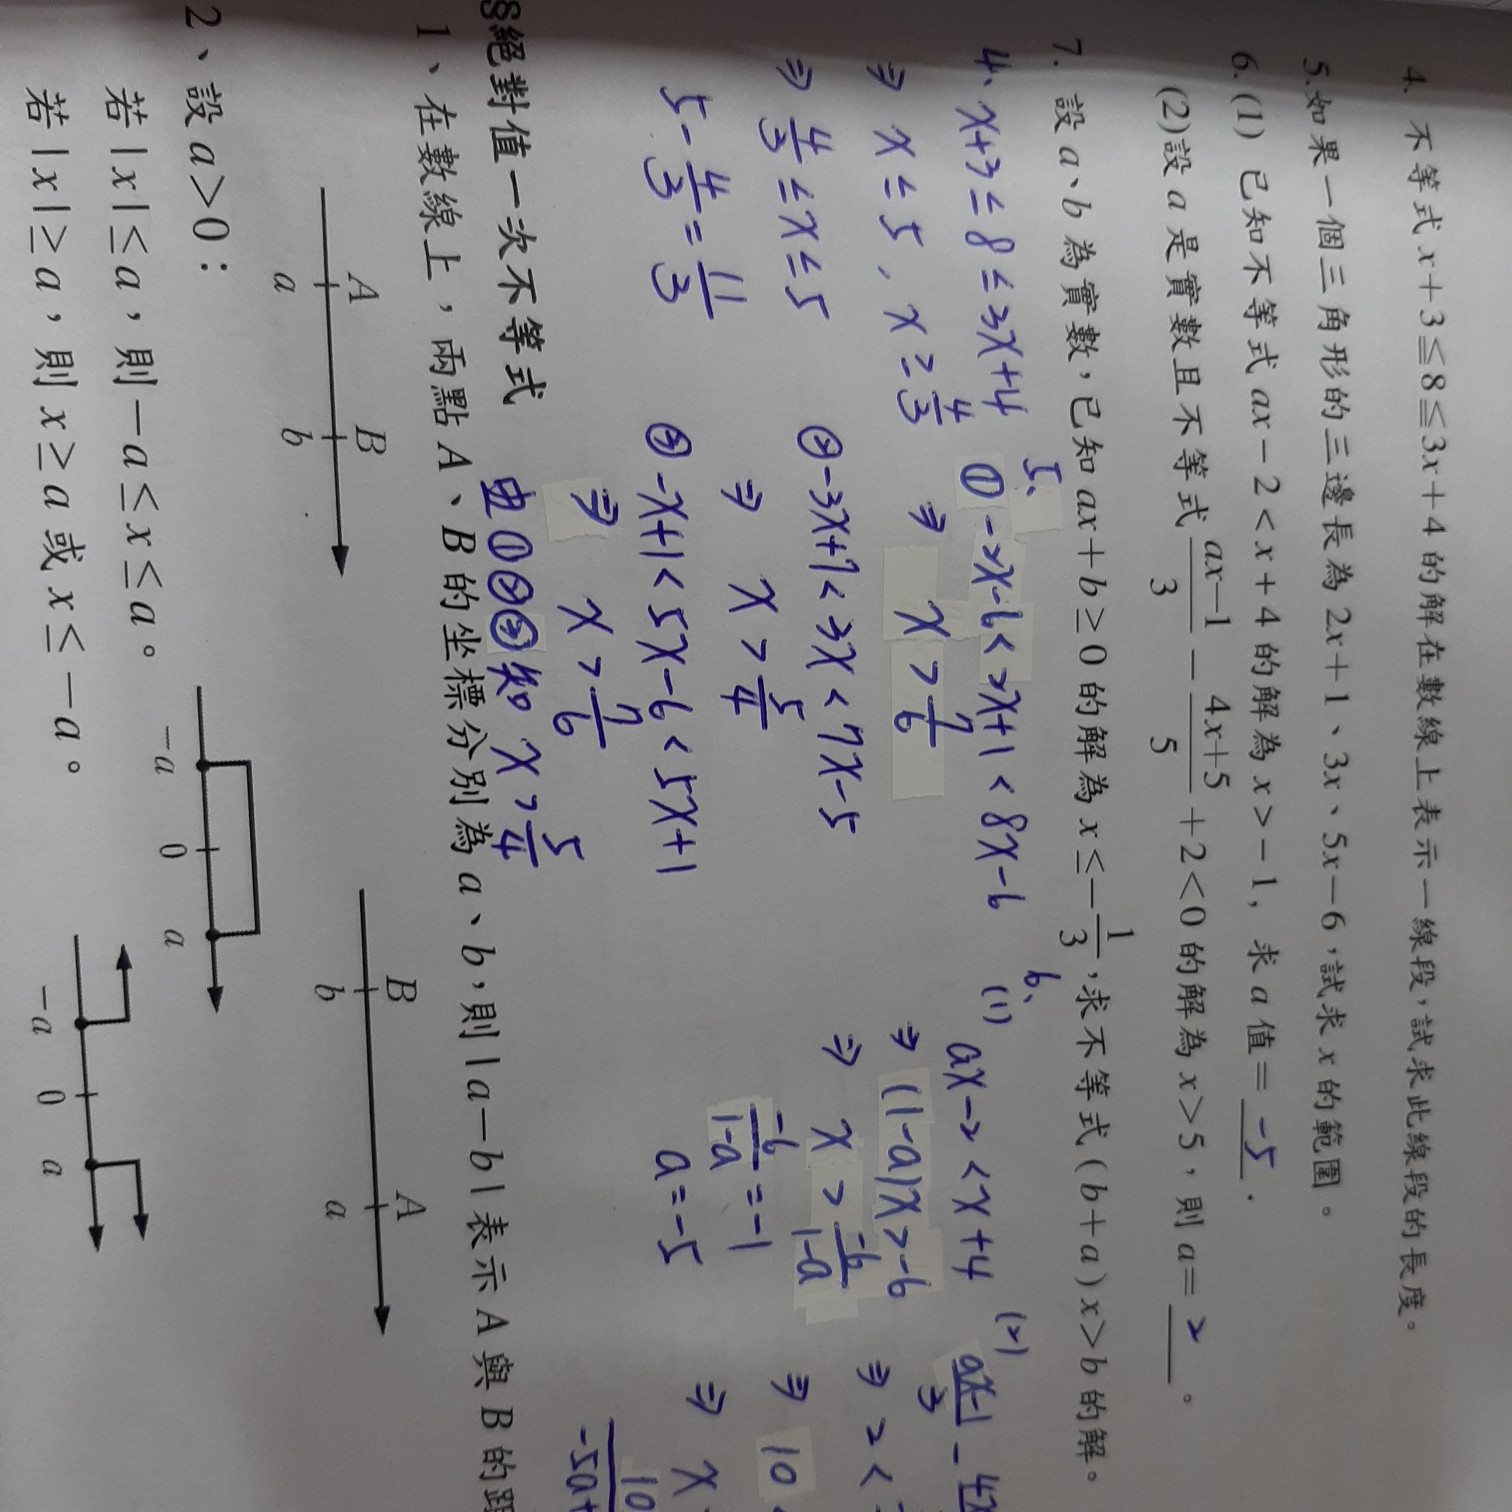 4. 不等式 x+3≦8≦3x+4 的解在數線上表示一線段，試求此線段的長度。
5. 如果一個三角形的三邊長為 2x+1、3x、5x−6，試求 x 的範圍。
6. (1) 已知不等式 ax−2<x+4 的解為 x>−1, 求 a 值= -5 .
(2)設 a 是實數且不等式 (ax−1)/3 − (4x+5)/5 +2<0 的解為 x>5，則 a= 2 。
7. 設 a、b 為實數，已知 ax+b≥0 的解為 x≤−1/3 ,求不等式 (b+a) x>b 的解。
4、 x+3≤8≤3x+4
⇒ x≤5 , x≥4/3
⇒ 4/3≤x≤5
5-4/3=11/3
5、
① -2x-6<2x+1<8x-6
⇒ x>7/6
② -3x+7<3x<7x-5
⇒ x>5/4
③ -x+1<5x-6<5x+1
⇒ x>7/6
由①②③知 x>5/4
6、
(1) ax-2<x+4
⇒ (1-a)x>-6
⇒ x>-6/1-a
-6/1-a=-1
a=-5
(2) ax-1/3 - 4x
⇒ 2<
⇒ 10
⇒ x
10
-5a+
§絕對值一次不等式
1、在數線上，兩點 A、B 的坐標分別為 a、b，則 |a−b| 表示 A 與 B 的距
A B
a b
B A
b a
2、設 a>0：
若 |x|≤a，則 −a≤x≤a。
−a 0 a
若 |x|≥a，則 x≥a 或 x≤−a。
−a 0 a